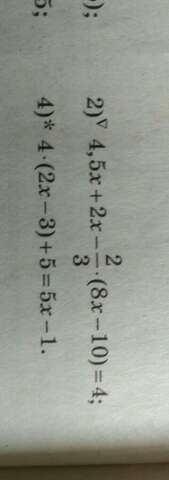 );
2)▽ 4,5x+2x−2/3·(8x−10)=4;
5;
4)* 4·(2x−3)+5=5x−1.